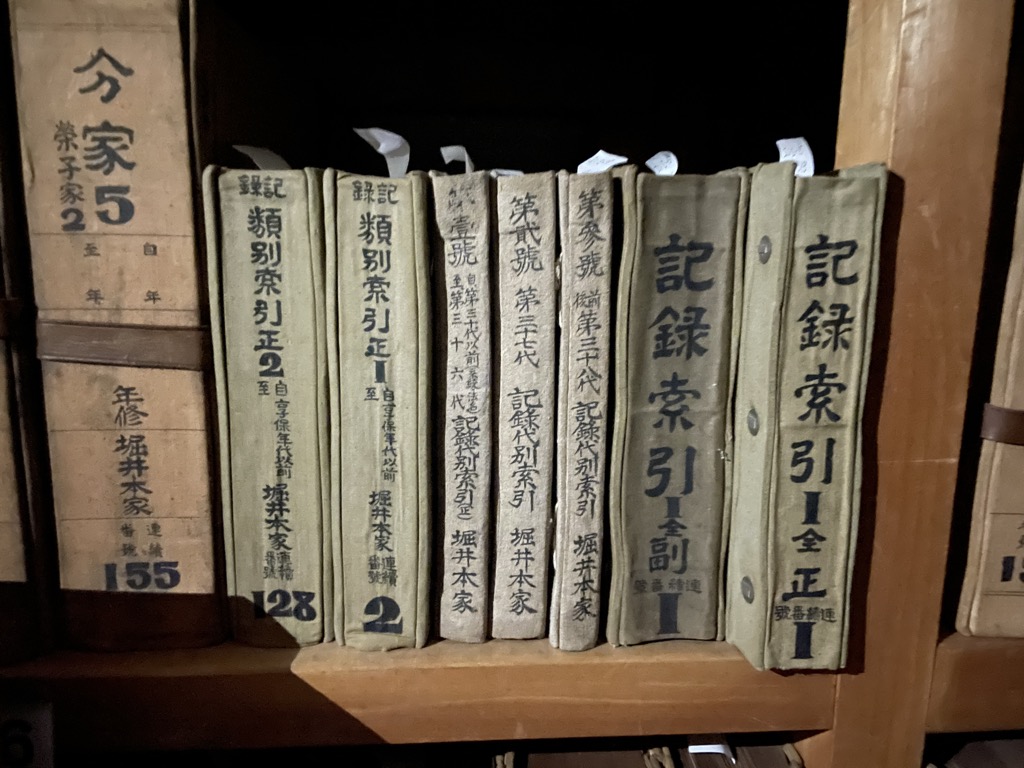 分家5
榮子家2
自 至
年 年
年修
堀井本家
連續番號
155
記錄
類別索引正2
自 至
享保年代以前
堀井本家
連續番號
128
記錄
類別索引正1
自 至
享保年代以前
堀井本家
連續番號
2
壹號
自第三十代以前
至第三十六代
記録代別索引(正)
堀井本家
第貳號
第三十七代
記録代別索引
堀井本家
第參號
第三十八代
前後
記録代別索引
堀井本家
記録索引1
全副
連續番號
1
記録索引1
全正
連續番號
1